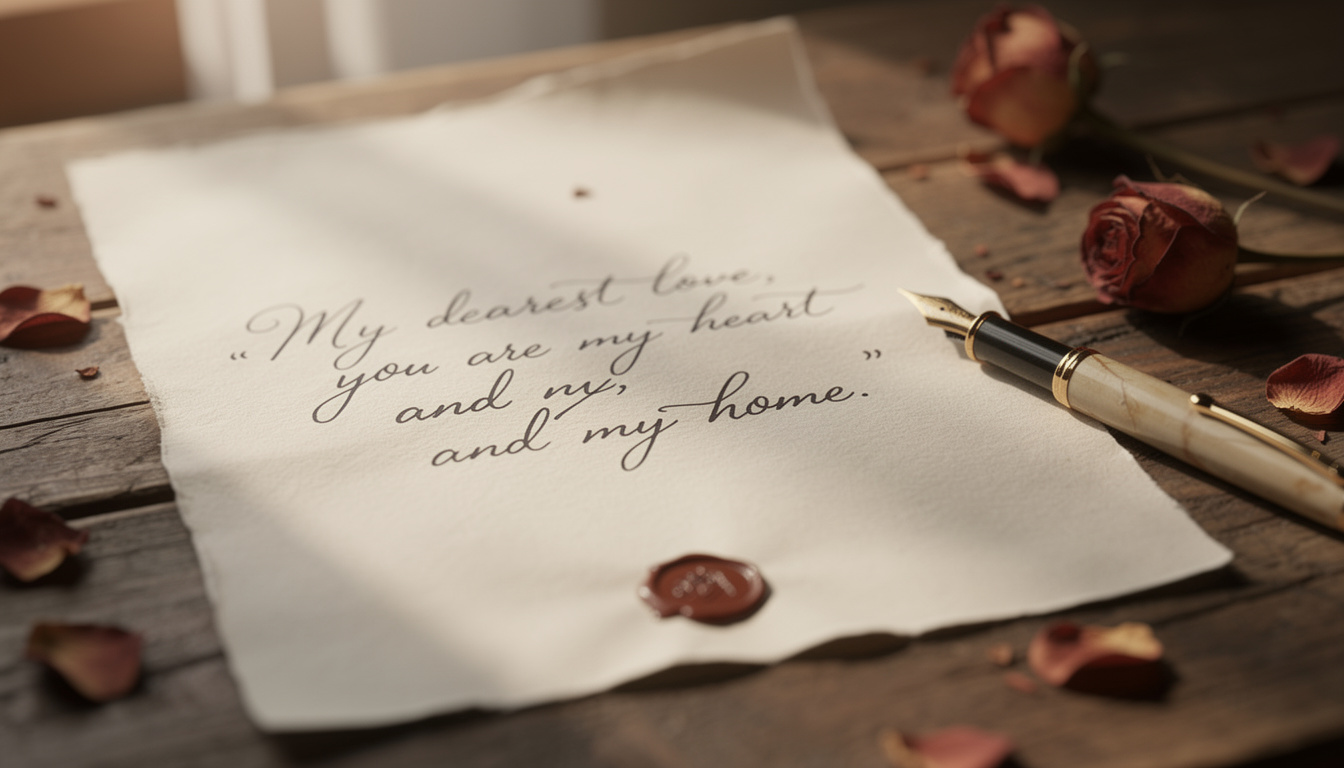 “My dearest love,
you are my heart
and my,
and my home.”